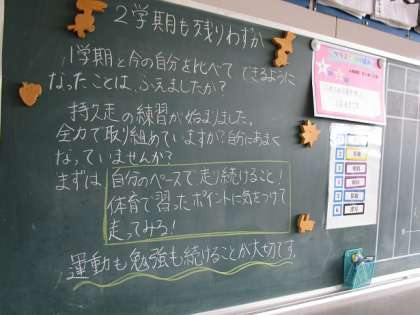 2学期も残りわずか
1学期と今の自分を比べてできるように
なったことは、ふえましたか?
持久走の練習が始まりました。
全力で取り組めていますか?自分にあまく
なっていませんか?
まずは 自分のペースで走り続けること!
体育で習ったポイントに気をつけて
走ってみろ!
運動も勉強も続けることが大切です。